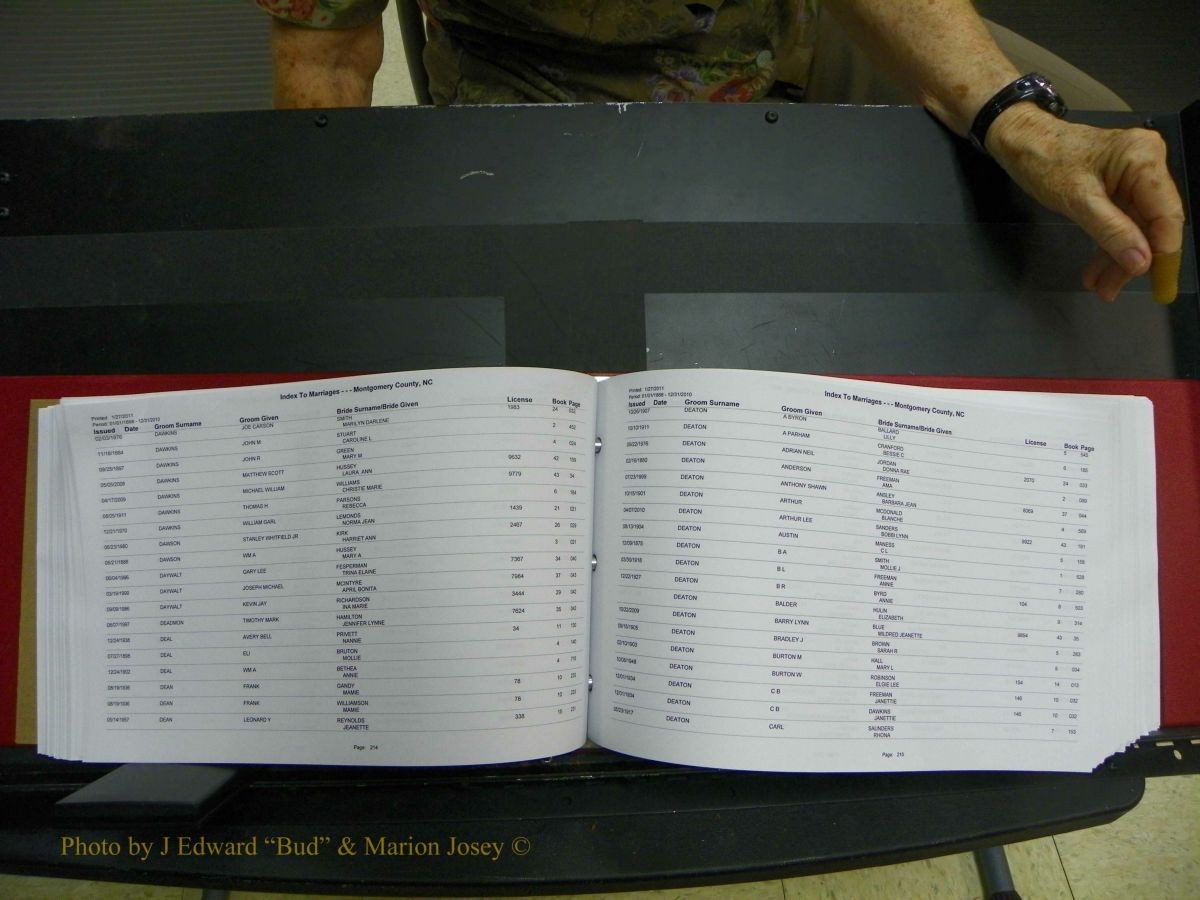 Index To Marriages - - - Montgomery County, NC
Printed: 1/27/2011
Period: 01/01/1868 - 12/31/2010
Issued Date Groom Surname Groom Given Bride Surname/Bride Given License Book Page
02/03/1976 DAWKINS JOE CARSON SMITH 1983 24 032
MARILYN DARLENE
11/16/1884 DAWKINS JOHN M STUART 2 452
CAROLINE L
09/23/1897 DAWKINS JOHN R GREEN 4 024
MARY M
05/05/2009 DAWKINS MATTHEW SCOTT HUSSEY 9632 42 159
LAURA ANN
04/17/2009 DAWKINS MICHAEL WILLIAM WILLIAMS 9779 43 34
CHRISTIE MARIE
06/25/1911 DAWKINS THOMAS H PARSONS 6 184
REBECCA
12/21/1970 DAWKINS WILLIAM GARL LEMONDS 1439 21 021
NORMA JEAN
06/23/1980 DAWSON STANLEY WHITFIELD JR KIRK 2467 26 029
HARRIET ANN
05/21/1888 DAWSON WM A HUSSEY 3 021
MARY A
05/04/1996 DAYWALT GARY LEE FESPERMAN 7367 34 040
TRINA ELAINE
03/19/1999 DAYWALT JOSEPH MICHAEL MCINTYRE 7984 37 043
APRIL BONITA
09/09/1986 DAYWALT KEVIN JAY RICHARDSON 3444 29 042
INA MARIE
06/07/1997 DEADMON TIMOTHY MARK HAMILTON 7624 35 042
JENNIFER LYNNE
12/24/1938 DEAL AVERY BELL PRIVETT 34 11 130
NANNIE
07/27/1898 DEAL ELI BRUTON 4 140
MOLLIE
12/24/1902 DEAL WM A BETHEA 4 710
ANNIE
08/19/1936 DEAN FRANK GANDY 78 10 233
MAMIE
08/19/1936 DEAN FRANK WILLIAMSON 78 10 233
MAMIE
05/14/1957 DEAN LEONARD Y REYNOLDS 338 15 231
JEANETTE
Page: 214
Printed: 1/27/2011
Period: 01/01/1868 - 12/31/2010
Index To Marriages - - - Montgomery County, NC
Issued Date Groom Surname Groom Given Bride Surname/Bride Given License Book Page
12/26/1907 DEATON A BYRON BALLARD 5 545
LILLY
10/10/1911 DEATON A PARHAM CRANFORD 6 185
BESSIE C
05/22/1976 DEATON ADRIAN NEIL JORDAN 2070 24 033
DONNA RAE
02/16/1880 DEATON ANDERSON FREEMAN 2 080
AMA
07/23/1999 DEATON ANTHONY SHAWN ANSLEY 8069 37 044
BARBARA JEAN
10/15/1901 DEATON ARTHUR MCDONALD 4 509
BLANCHE
04/07/2010 DEATON ARTHUR LEE SANDERS 9922 43 181
BOBBI LYNN
08/13/1904 DEATON AUSTIN MANESS 5 155
C L
12/09/1875 DEATON B A SMITH 1 528
MOLLIE J
03/30/1918 DEATON B L FREEMAN 7 280
ANNIE
12/22/1927 DEATON B R BYRD 104 8 503
ANNIE
DEATON BALDER HULIN 5 314
ELIZABETH
10/22/2009 DEATON BARRY LYNN BLUE 9854 43 35
MILDRED JEANETTE
09/16/1905 DEATON BRADLEY J BROWN 5 283
SARAH R
02/10/1903 DEATON BURTON M HALL 5 034
MARY L
10/08/1948 DEATON BURTON W ROBINSON 154 14 013
ELGIE LEE
12/01/1934 DEATON C B FREEMAN 146 10 032
JANETTIE
12/01/1934 DEATON C B DAWKINS 146 10 032
JANETTIE
05/23/1917 DEATON CARL SAUNDERS 7 153
RHONA
Page: 215
Photo by J Edward “Bud” & Marion Josey ©